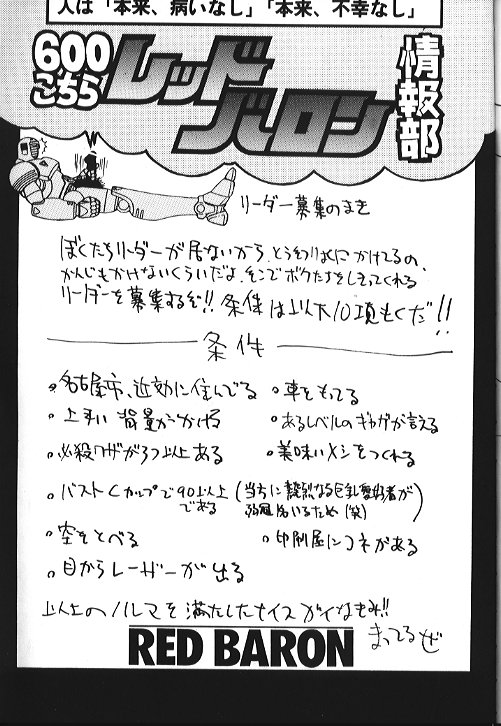 人は「本来、病いなし」「本来、不幸なし」
600
こちら
レッド
バロン
情報部
リーダー募集のまき
ぼくたちリーダーが居ないから、とうそつりょくにかけてるの、
かんじもかけないくらいだよ、そこでボクたちをしきってくれる
リーダーを募集するぞ!!条件は以下10項もくだ!!
条件
・名古屋市、近効に住んでる
・車をもってる
・上手い背景がかける
・あるレベルのギャグが言える
・必殺ワザが3つ以上ある
・美味いメシをつくれる
・バストCカップで90以上である
(当方に熱烈なる巨乳愛好者が
居るため(笑))
・空をとべる
・印刷屋にコネがある
・目からレーザーが出る
以上のノルマを満たしたナイスガイなきみ!!
まってるぜ
RED BARON